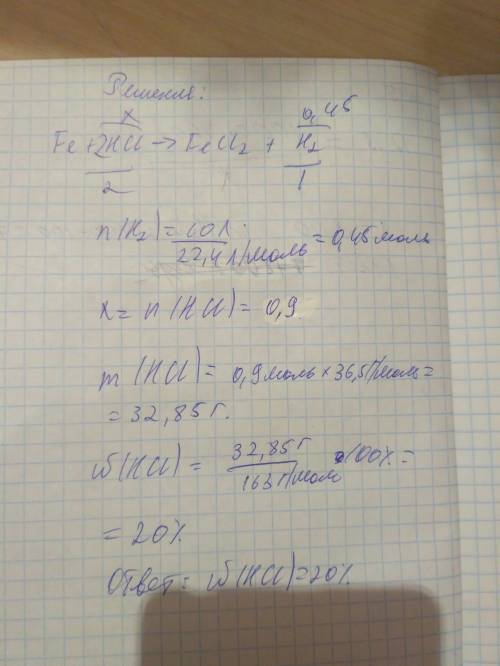 Решения:
x 0,45
Fe + 2HCl → FeCl2 + H2
2 1
n(H2) = 10 л / 22,4 л/моль = 0,45 моль
x = n(HCl) = 0,9
m(HCl) = 0,9 моль × 36,5 г/моль =
= 32,85 г.
ω(HCl) = 32,85 г / 163 г/моль · 100% =
= 20%
Ответ: ω(HCl) = 20%